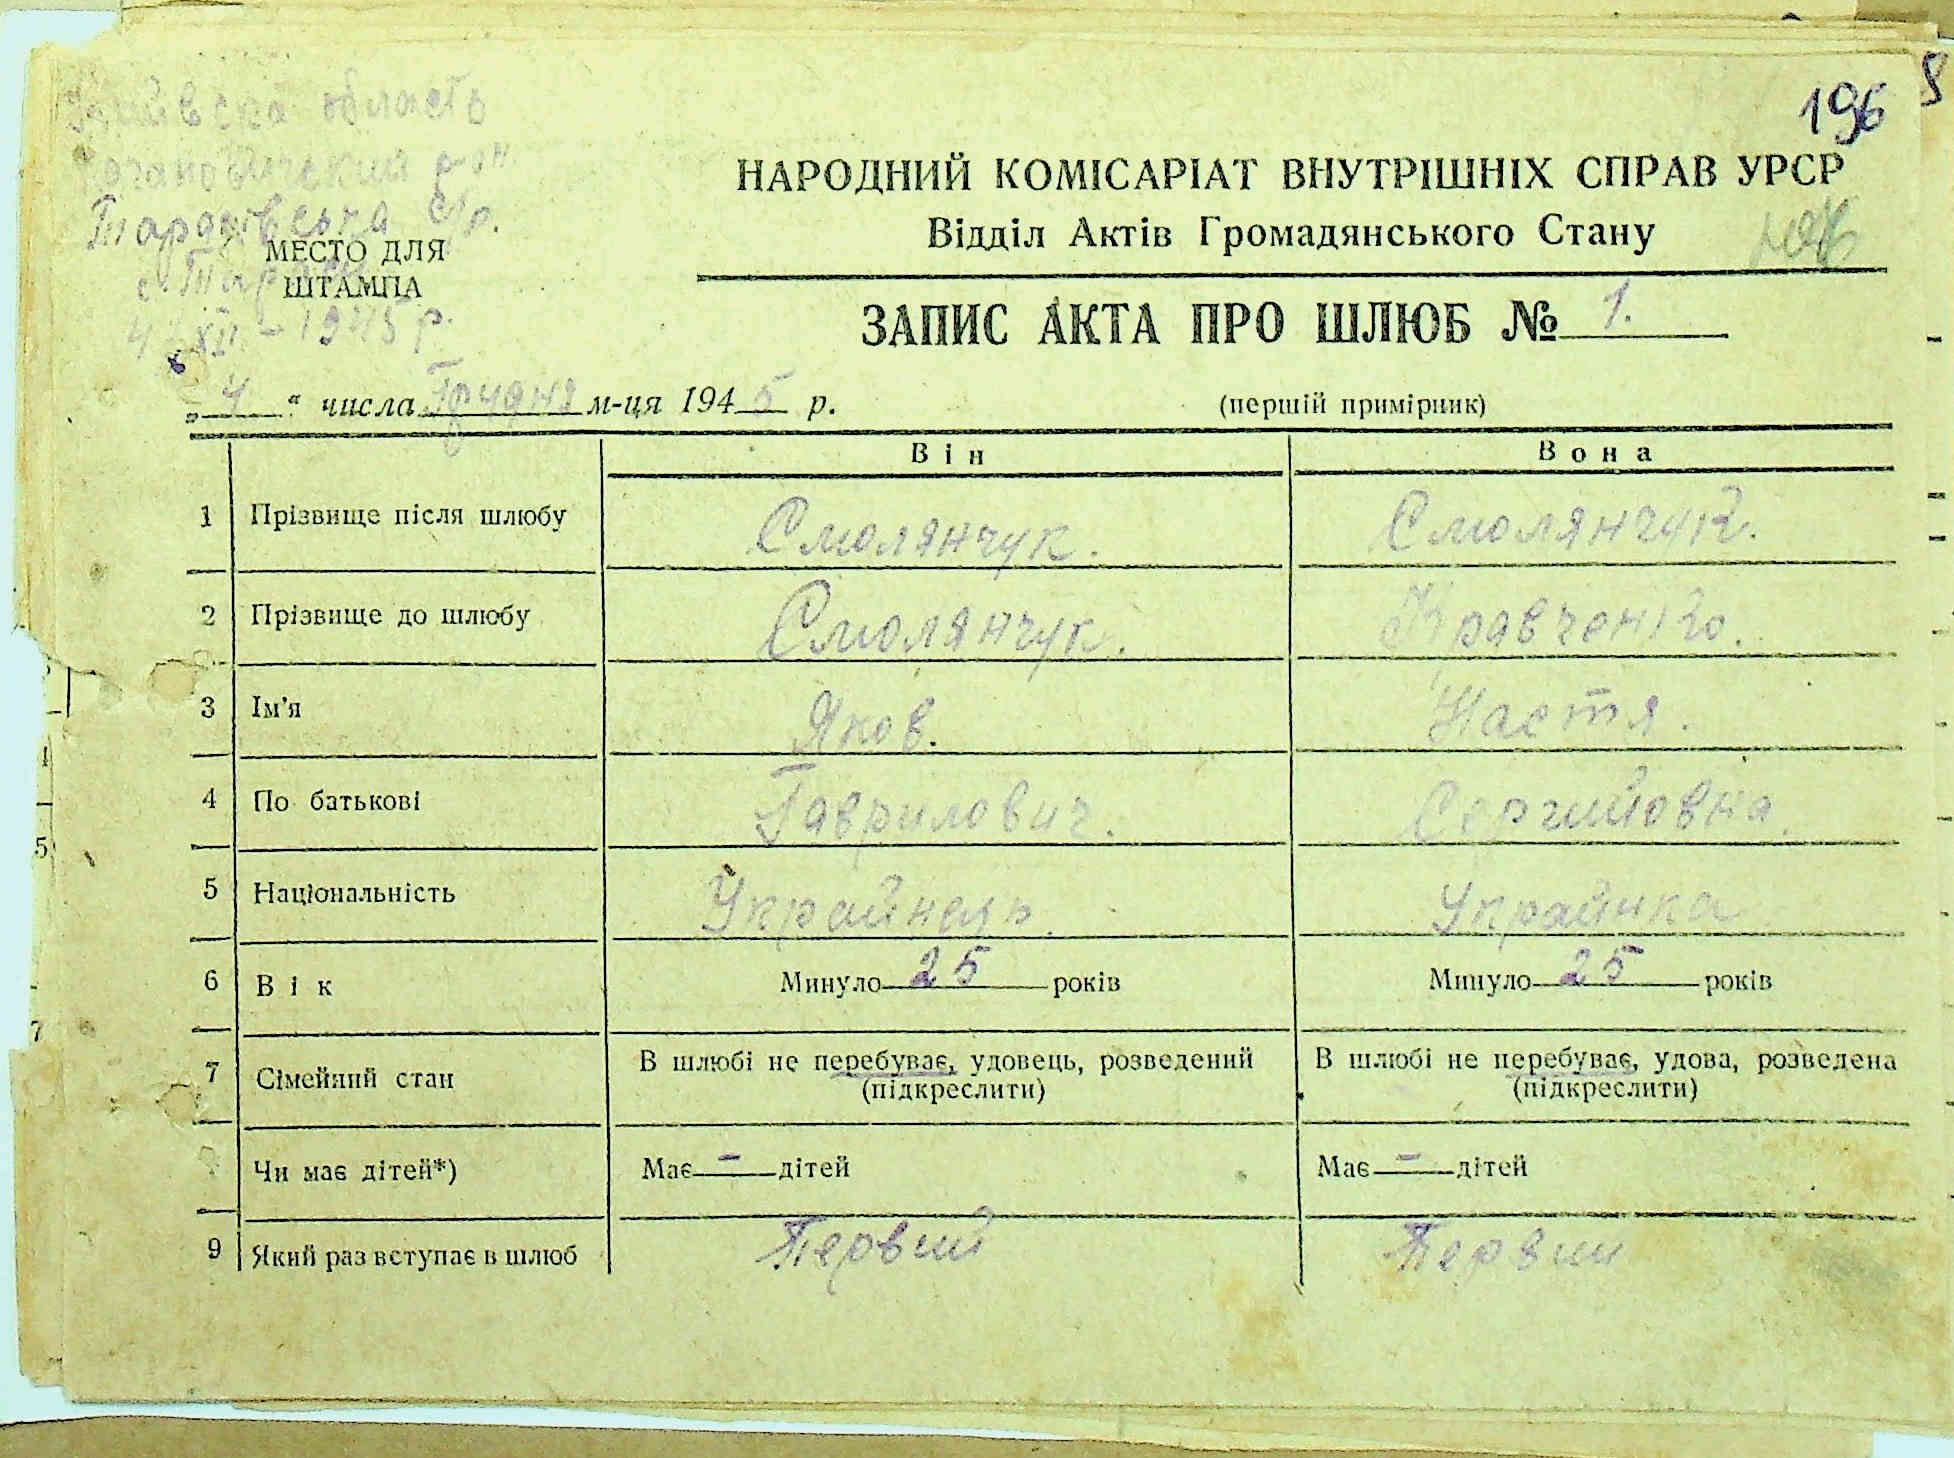 196
область
р-н.
с/р.
МЕСТО ДЛЯ
ШТАМПА
4 XII - 1945 р.
НАРОДНИЙ КОМІСАРІАТ ВНУТРІШНІХ СПРАВ УРСР
Відділ Актів Громадянського Стану
ЗАПИС АКТА ПРО ШЛЮБ № 1.
„ 4 “ числа Грудня м-ця 1945 р.
(першій примірник)
Він Вона
1 Прізвище після шлюбу Смолянчук. Смолянчук.
2 Прізвище до шлюбу Смолянчук. Кравченко.
3 Ім'я Яков. Настя.
4 По батькові Гаврилович. Сергийовна.
5 Національність Украйнець. Украйнка
6 Вік Минуло 25 років Минуло 25 років
7 Сімейний стан В шлюбі не перебуває, удовець, розведений В шлюбі не перебуває, удова, розведена
(підкреслити) (підкреслити)
Чи має дітей*) Має — дітей Має — дітей
9 Який раз вступає в шлюб Первий Первий